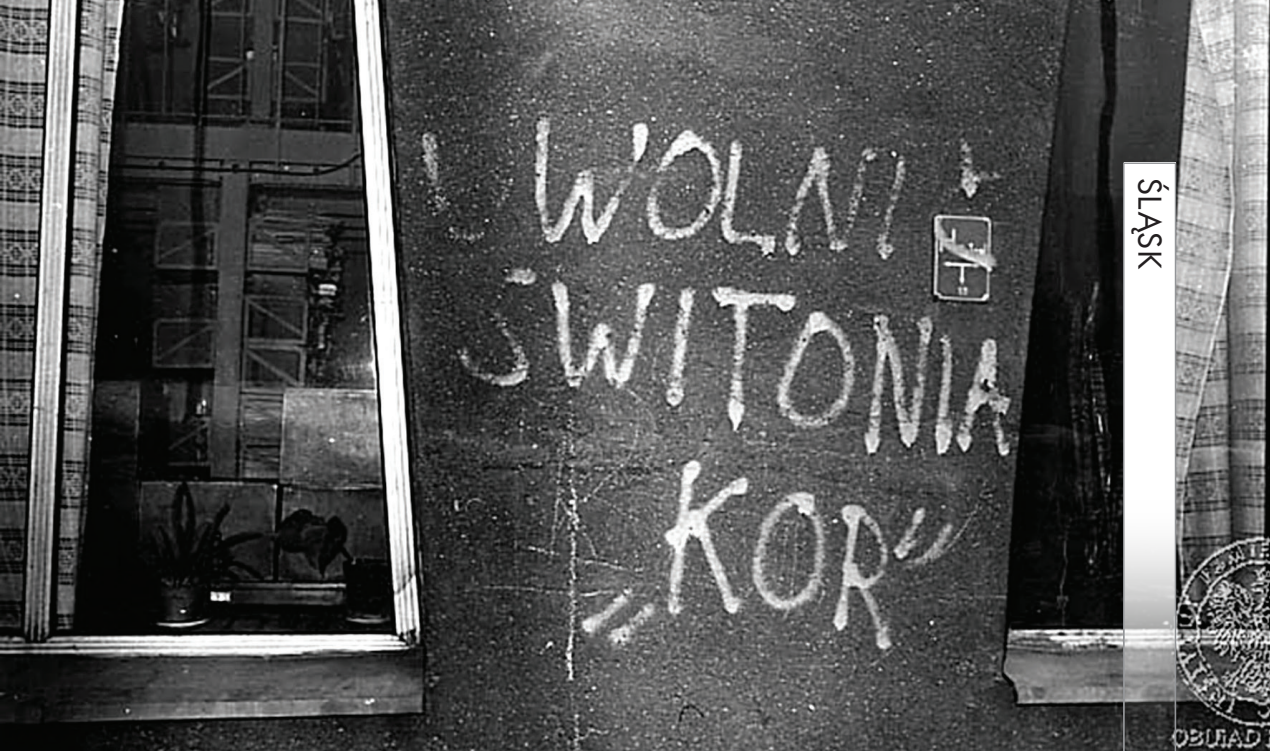 UWOLNIĆ
ŚWITONIA
„KOR”
ŚLĄSK